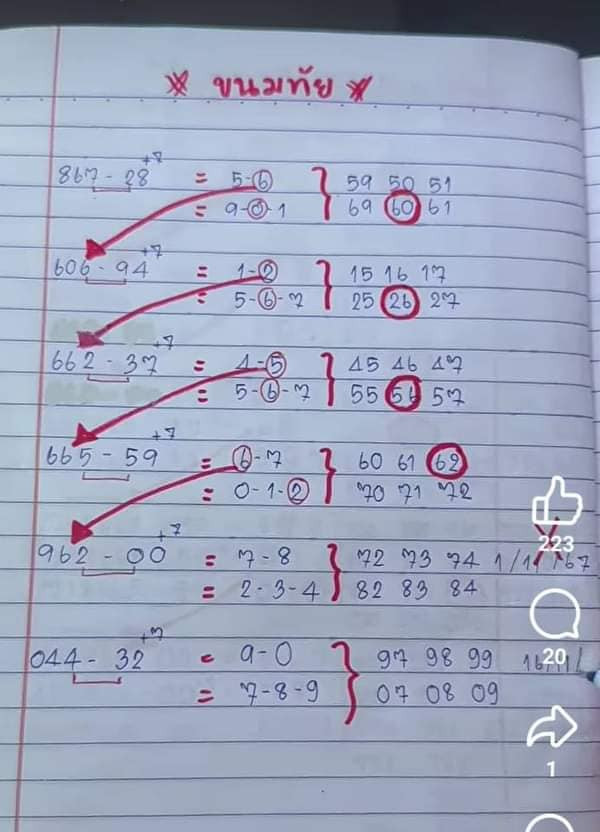 * ขนมทัย *
+7
867 - 28 = 5-6 } 59 50 51
= 9-0-1 69 60 61
+7
606 - 94 = 1-2 } 15 16 17
= 5-6-7 25 26 27
+7
662 - 37 = 4-5 } 45 46 47
= 5-6-7 55 56 57
+7
665 - 59 = 6-7 } 60 61 62
= 0-1-2 70 71 72
+7
962 - 00 = 7-8 } 72 73 74 1/1/ 67
= 2-3-4 82 83 84
+7
044 - 32 = 9-0 } 97 98 99
= 7-8-9 07 08 09
223
20
1